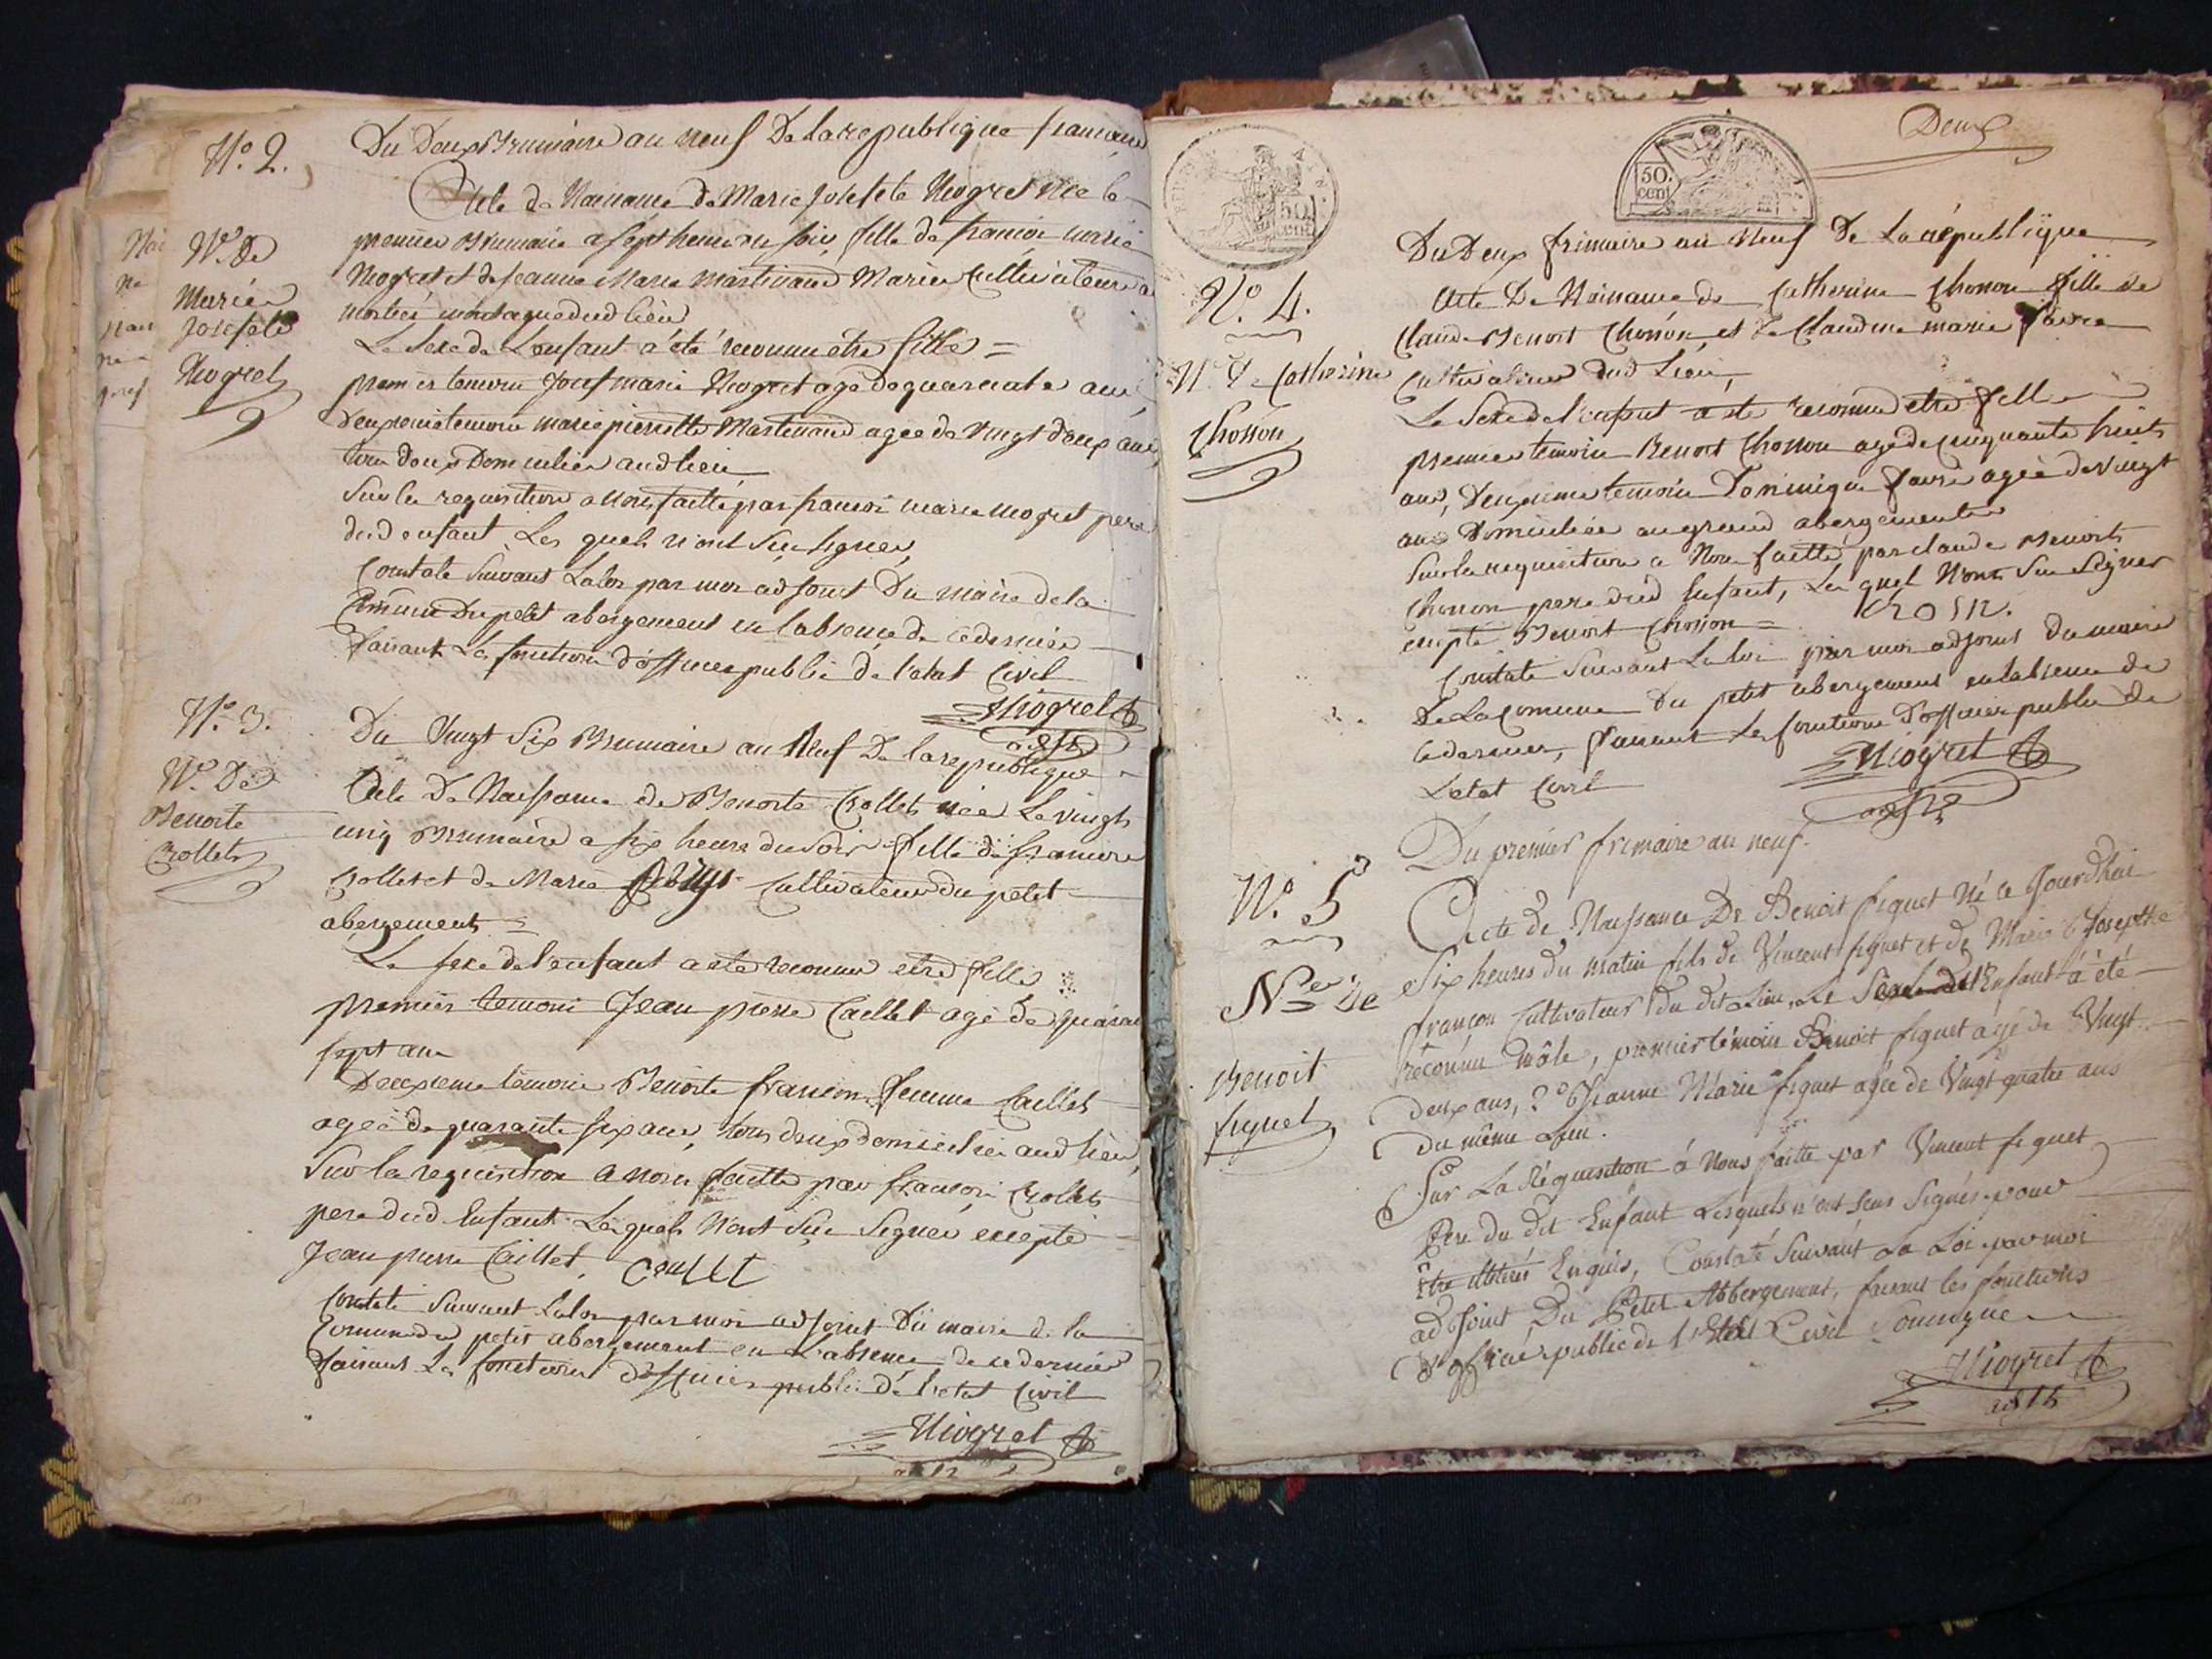 N.º 2.
Du Deux Brumaire an neuf De la republique francaise
N.ce De
Marie
Josefete
Niogret
Acte de Naisance de Marie Josefete Niogret Née le
premier Brumaire a sept heure du soir, fille de francoi marie
Niogret et de Jeanne Marie Martinand Mariée Cultivateurs a
montagne dud lieu
Le Sexe de Lenfant a été reconnu etre fille =
premier temoin Josef marie Niogret agé de quarente ans
deuxieme temoin marie pierrette Martinand agée de vingt deux ans,
tous deux Domiciliés aud lieu
Sur la requisition a nous faitte par francoi marie niogret pere
dud enfant Les quels n'ont Su signer,
Constaté Suivant La loi par moi adjoint Du maire de la
Comune Du petit abergement en l'absence de ce dernier
faisant Les fonctions d'officier public de l'etat Civil
Niogret
adjt
N.º 3.
Du Vingt Six Brumaire an Neuf De la republique
N.ce De
Benoite
Crollet
Acte De Naissance de Benoite Crollet née Le vingt
cinq Brumaire a six heure du soir fille de francois
Crollet et de Marie Cultivateur du petit
abergement =
Le sexe de l'enfant a ete reconnu etre fille
premier temoin Jean pierre Caillet agé de quarante
sept ans
Deuxieme temoin Benoite francon femme Caillet
agée de quarante six ans, tous deux domiciliés aud lieu,
Sur la requisition a nous faitte par francois Crollet
pere dud Enfant Lesquels N'ont Su Signer excepté
Jean pierre Caillet, Caillet
Constaté Suivant La loi par moi adjoint Du maire de la
Comune du petit abergement en L'absence de ce dernier
faisant Les fonctions d'officier public de l'etat Civil
Niogret
adjt
Deux
50.
cent
50.
cent
Du Deux frimaire an Neuf De La république
N.º 4.
N.ce De Catherine
Chosson
Acte De Naisance de Catherine Chosson fille de
Claude Benoit Chosson et de Claudine marie favre
Cultivateur dud Lieu,
Le Sexe de l'enfant a ete reconnu etre fille
premier temoin Benoit Chosson agé de cinquante huit
ans, Deuxieme temoin Dominique favre agée de vingt
ans Domiciliée au grand abergement
Sur la requisition a Nous faitte par claude Benoit
Chosson pere dud Enfant, Les quel N'ont Su Signer
excepté Benoit Chosson =
Constaté Suivant La loi par moi adjoint du maire
De La Comune Du petit abergement en labsence de
ce dernier, faisant Les fonctions d'officier public de
L'etat Civil
Niogret
adjt
Du premier frimaire an neuf.
N.º 5
N.ce de
Benoit
figuet
Acte de Naissance De Benoit figuet Né ce Jourdhui
Six heures du matin fils de Vincent figuet et de Marie Josephte
françon Cultivateur du dit Lieu, Le Sexe de l'Enfant à été
réconnu mâle, premier témoin Benoit figuet agé de Vingt
deux ans, 2.º Jeanne Marie figuet agée de Vingt quatre ans
du même Lieu.
Sur La Réquisition à Nous faitte par Vincent figuet
Pere du dit Enfant Lesquels n'ont Signés pour
être illétérés Enquis, Constaté Suivant La Loi par moi
adjoint Du Petit Abbergement, faisant les fonctions
d'officier public de l'Etat Civil Soussigné
Niogret
adjt